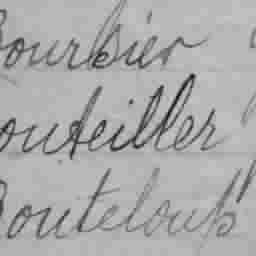 Bourbier
Bouteiller
Bouteloup